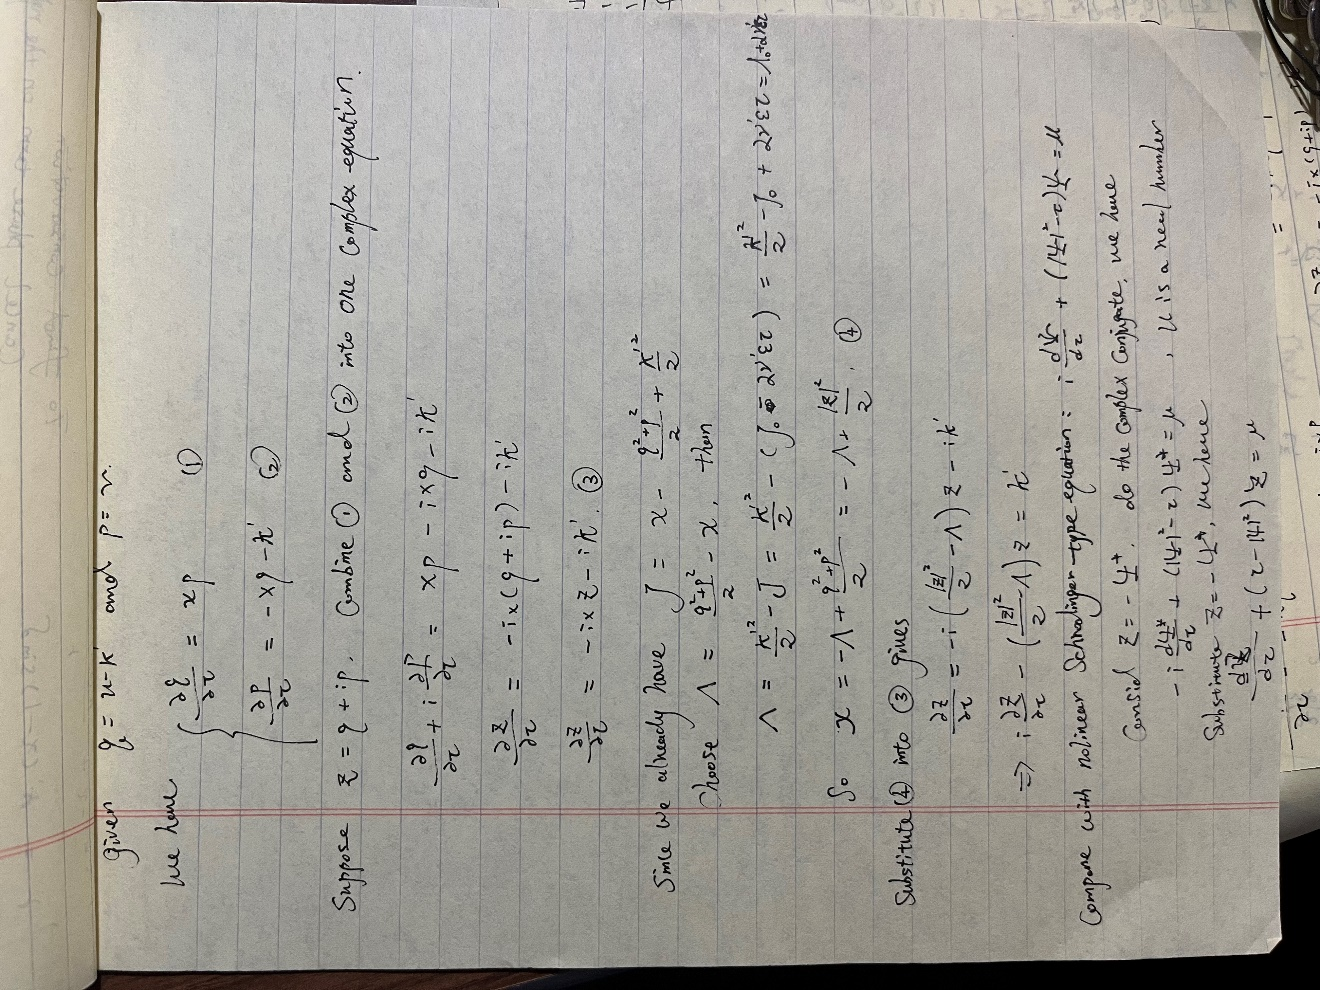 given q = u-k' and p = v.
We have
{ ∂q/∂τ = xp ①
∂p/∂τ = -xq-k' ②
Suppose z = q+ip, Combine ① and ② into one complex equation.
∂q/∂τ + i ∂p/∂τ = xp - ixq - ik'
∂z/∂τ = -ix(q+ip) - ik'
∂z/∂τ = -ixz - ik'. ③
Since we already have J = x - (q²+p²)/2 + k'²/2
Choose Λ = (q²+p²)/2 - x, then
Λ = k'²/2 - J = k'²/2 - (J₀ - 2ν'ετ) = k'²/2 - J₀ + 2ν'ετ = Λ₀+2ν'ετ
So x = -Λ + (q²+p²)/2 = -Λ + |z|²/2. ④
Substitute ④ into ③ gives
∂z/∂τ = -i(|z|²/2 - Λ)z - ik'
⇒ i ∂z/∂τ - (|z|²/2 - Λ)z = k'
Compare with nolinear Schrodinger-type equation: i dΨ/dτ + (|Ψ|²-τ)Ψ = μ
Consid z = -Ψ*. do the complex Conjugate, we have
-i dΨ*/dτ + (|Ψ|²-τ)Ψ* = μ, μ is a real number
Substitute z = -Ψ*, we have
dz/dτ + (τ-|Ψ|²)z = μ